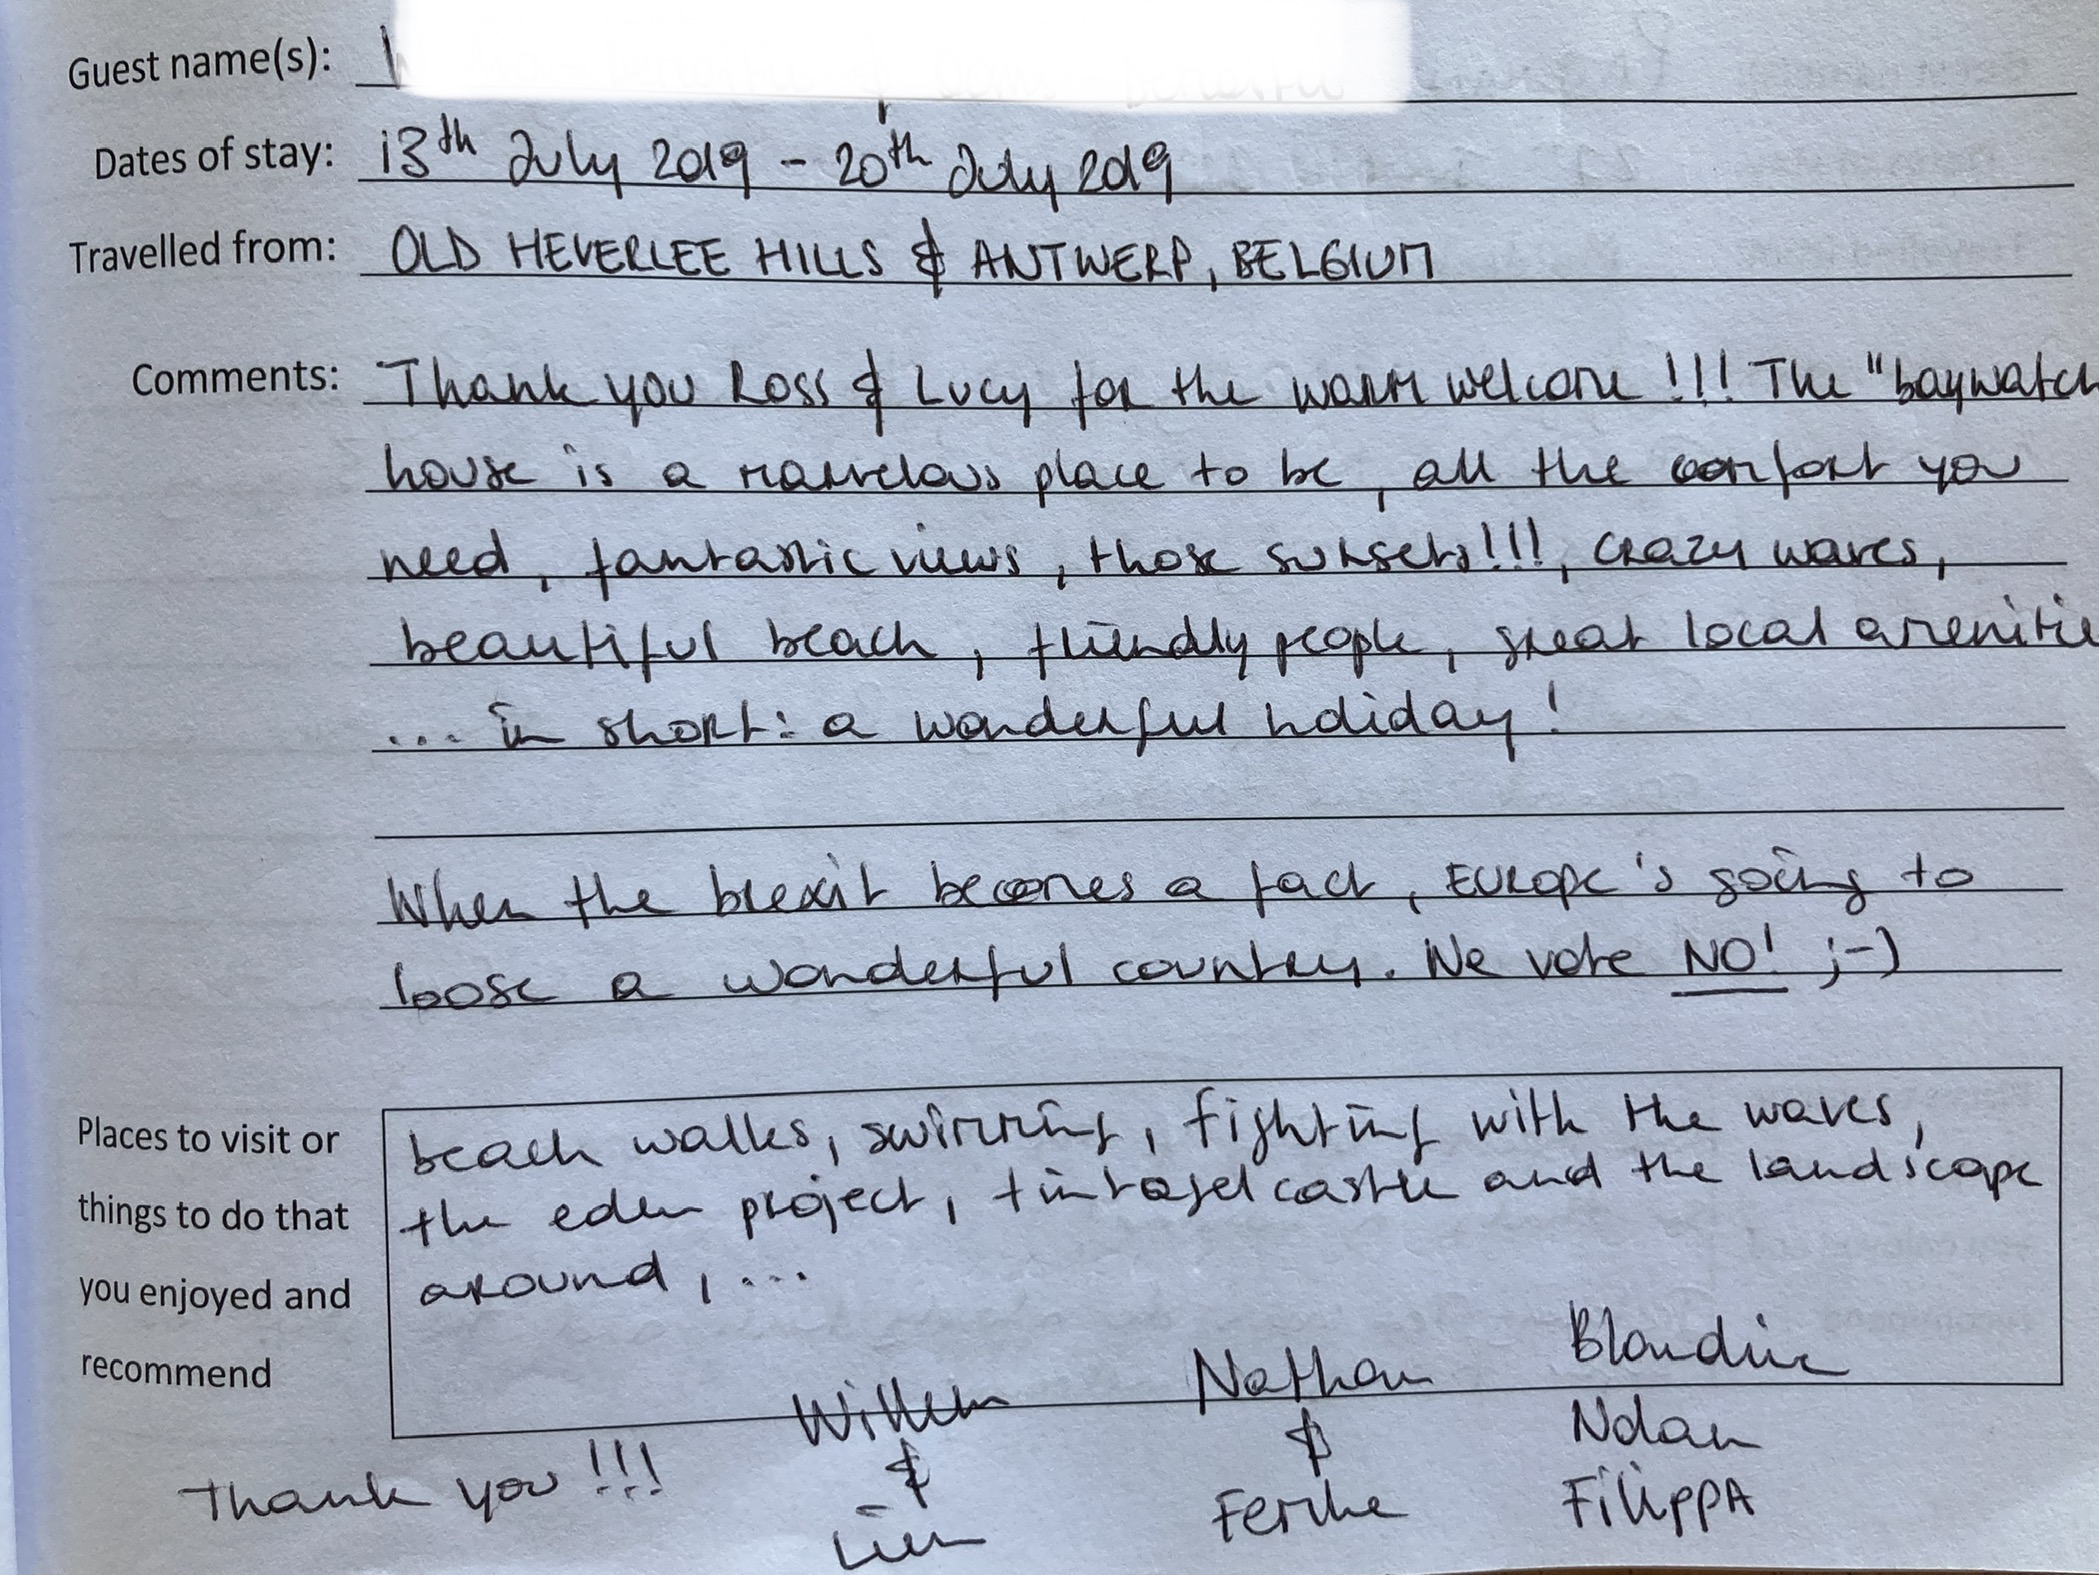 Guest name(s):
Dates of stay: 13th July 2019 - 20th July 2019
Travelled from: OLD HEVERLEE HILLS & ANTWERP, BELGIUM
Comments: Thank you Ross & Lucy for the warm welcome !!! The "baywatch
house is a marvelous place to be, all the comfort you
need, fantastic views, those sunsets!!!, crazy waves,
beautiful beach, friendly people, great local amenitie
... in short: a wonderful holiday!
When the brexit becomes a fact, Europe's going to
loose a wonderful country. We vote NO! ;-)
Places to visit or
things to do that
you enjoyed and
recommend
beach walks, swimming, fighting with the waves,
the eden project, tintagel castle and the landscape
around, ...
Thank you !!!
Willem
&
Lien
Nathan
&
Femke
Blandine
Nolan
FilippA